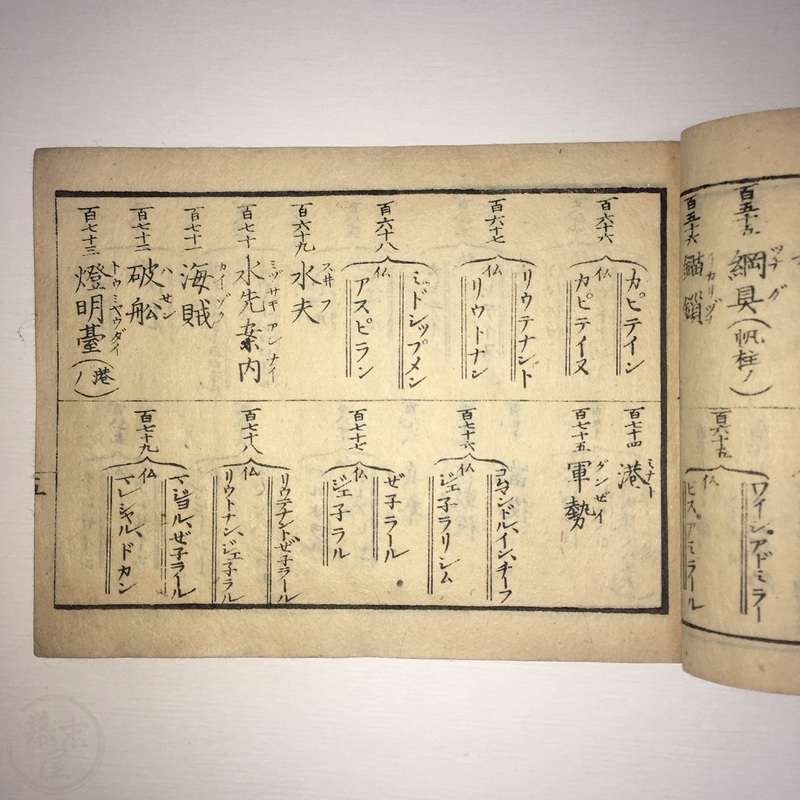 百五十五
綱具(帆柱ノ)
ツナグ
百五十六
錨鎖
百六十五
ワイン、アドミラー
仏
ビス、アミラール
百六十六
カピテイン
仏
カピテイヌ
百六十七
リウテナント
仏
リウトナン
百六十八
ミドシップメン
仏
アスピラン
百六十九
水夫
スヰフ
百七十
水先案内
ミヅサキアンナイ
百七十一
海賊
カイゾク
百七十二
破舩
ハセン
百七十三
燈明臺(港ノ)
トウミヤウダイ
百七十四
港
ミナト
百七十五
軍勢
グンゼイ
百七十六
コムマンドル、イン、チーフ
仏
ジェ子ラリシム
百七十七
ぜ子ラール
仏
ジェ子ラル
百七十八
リウテナントぜ子ラール
仏
リウトナン、ジェ子ラル
百七十九
マジョル、ぜ子ラール
仏
マレシャル、ドカン
五